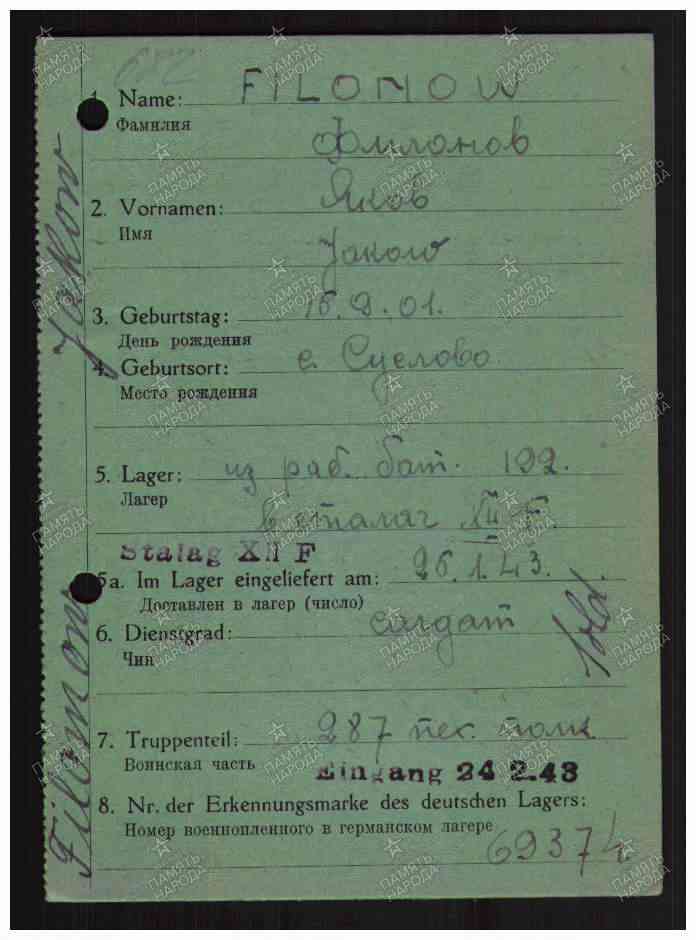 682
1. Name: FILONOW
Фамилия
Филонов
2. Vornamen: Яков
Имя
Jakow
3. Geburtstag: 16.9.01.
День рождения
4. Geburtsort: с. Суслово
Место рождения
5. Lager: из раб. бат. 192.
Лагер
в сталаг XII F.
Stalag XII F
5a. Im Lager eingeliefert am: 26.1.43.
Доставлен в лагер (число)
6. Dienstgrad: салдат
Чин
Sold.
7. Truppenteil: 287 пех. полк
Воинская часть
Eingang 24 2.43
8. Nr. der Erkennungsmarke des deutschen Lagers:
Номер военнопленного в германском лагере
69374.
Filonow Jakow
ПАМЯТЬ
НАРОДА